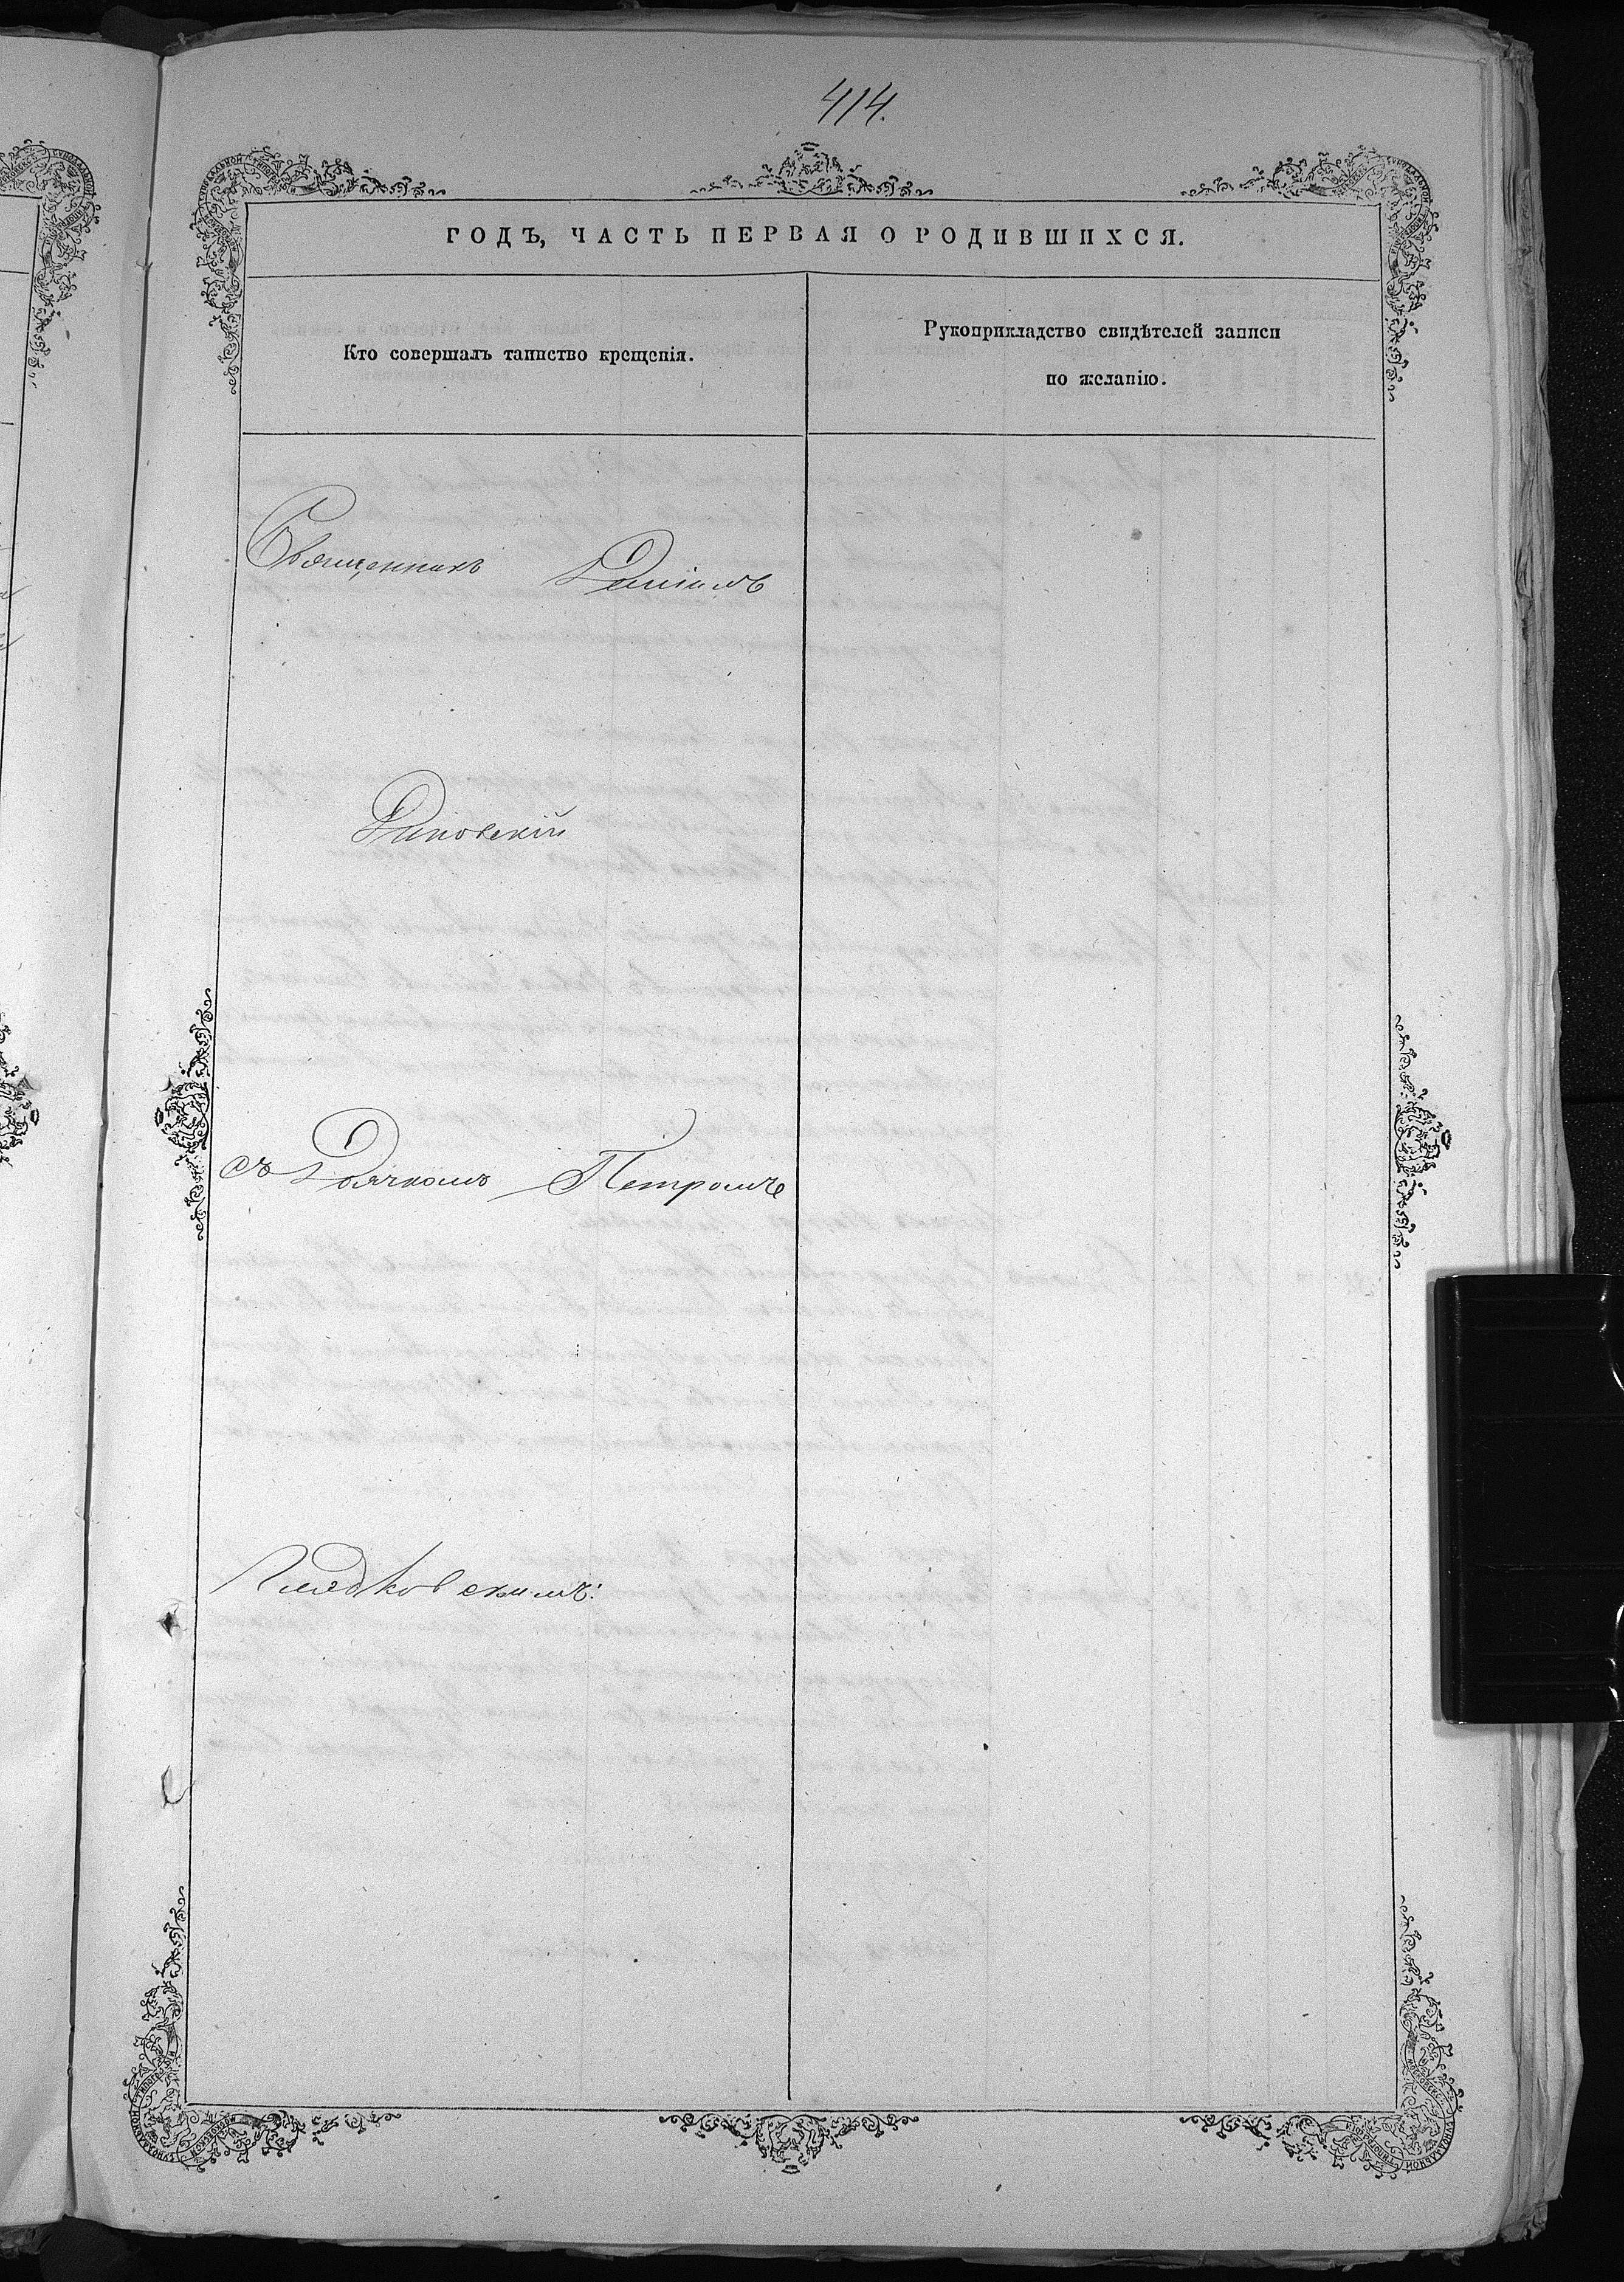 414.
ГОДЪ, ЧАСТЬ ПЕРВАЯ О РОДИВШИХСЯ.
Кто совершалъ таинство крещенія.
Рукоприкладство свидѣтелей записи
по желанію.
Священникъ Даніилъ
съ Дьячкомъ Петромъ